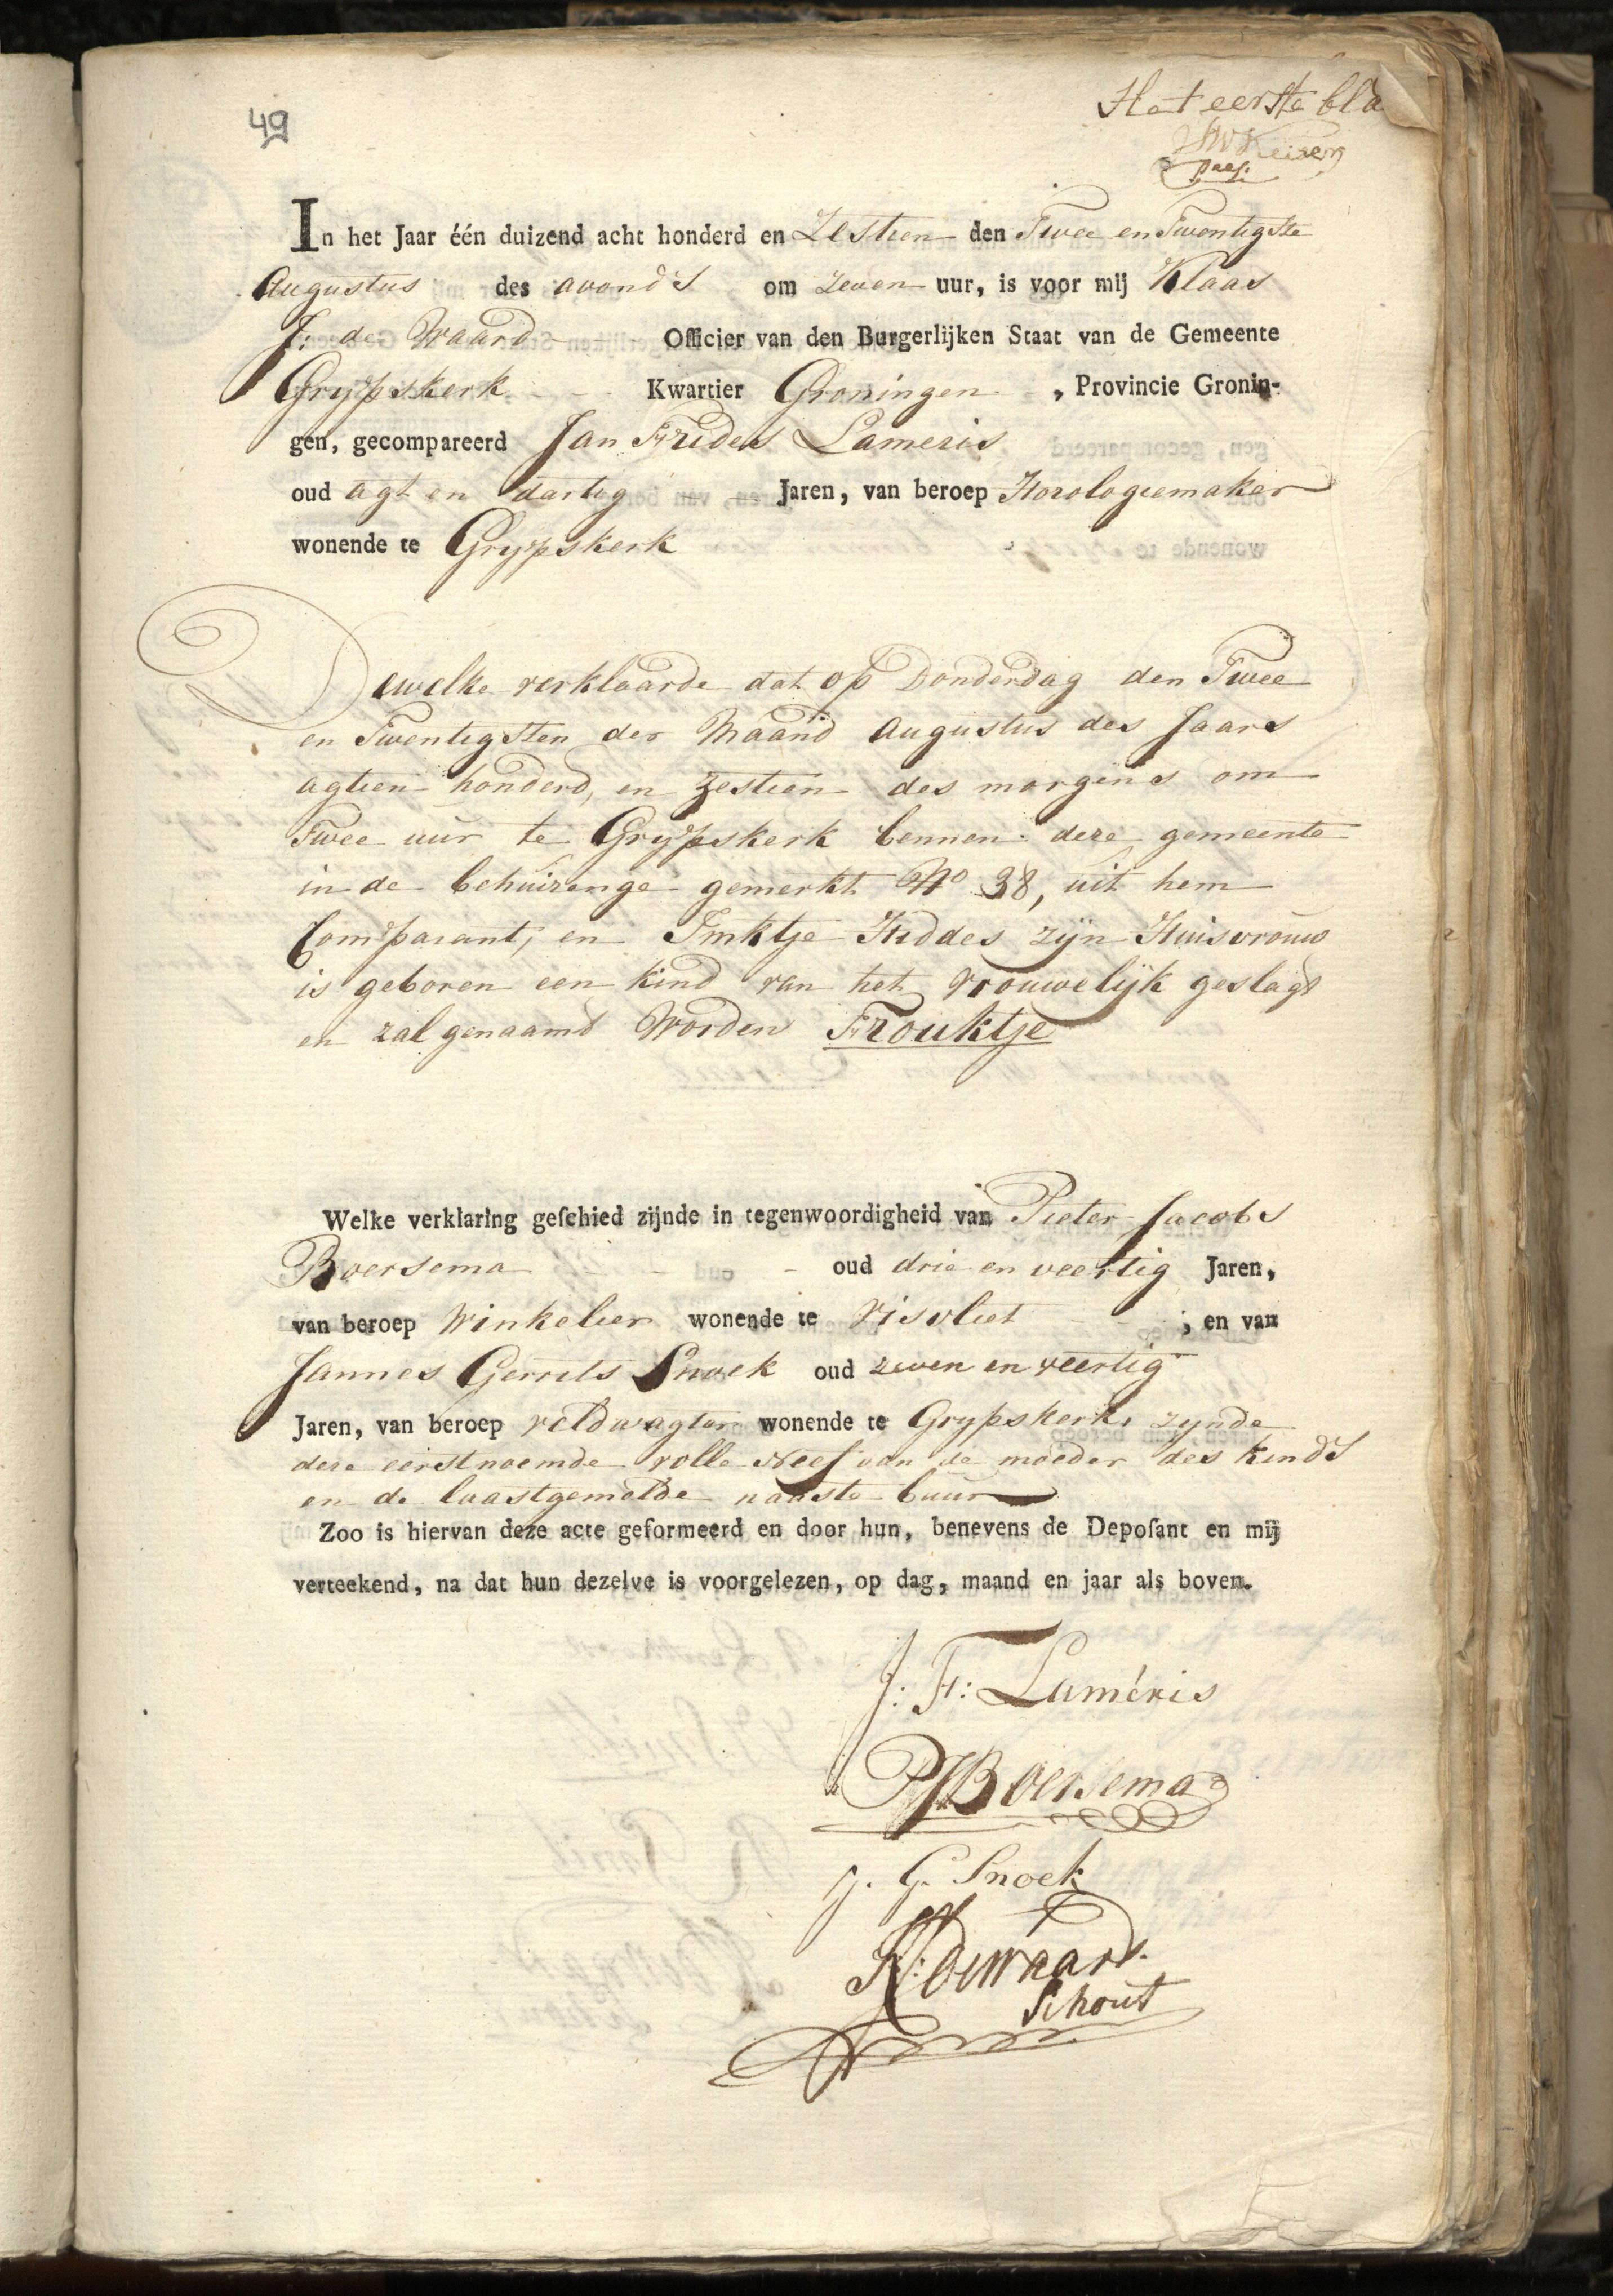 49
Het eerste bla
In het Jaar één duizend acht honderd en Zestien den Twee en Twentigste
Augustus des avonds om zeven uur, is voor mij Klaas
J: de Waard Officier van den Burgerlijken Staat van de Gemeente
Grijpskerk Kwartier Groningen, Provincie Gronin-
gen, gecompareerd Jan Friedes Lameris
oud agt en dartig Jaren, van beroep Horologiemaker
wonende te Grijpskerk
Dewelke verklaarde dat op Donderdag den Twee
en Twentigsten der Maand Augustus des Jaars
agtien honderd, en Zestien des morgens om
Twee uur te Grijpskerk binnen deze gemeente
in de behuizinge gemerkt No 38, uit hem
Comparant, en Imktje Hiddes zijn Huisvrouw
is geboren een kind van het vrouwelijk geslagt
en zal genaamd Worden Frouktje
Welke verklaring geschied zijnde in tegenwoordigheid van Pieter Jacobs
Boersema oud drie en veertig Jaren,
van beroep Winkelier wonende te Visvliet; en van
Jannes Gerrits Snoek oud zeven en veertig
Jaren, van beroep veldwagter wonende te Grijpskerk, zijnde
deze eerstnoemde volle Neef van de moeder des kinds
en de laastgemelde naaste buur
Zoo is hiervan deze acte geformeerd en door hun, benevens de Deposant en mij
verteekend, na dat hun dezelve is voorgelezen, op dag, maand en jaar als boven.
J: F: Laméris
PJBoersema
J. G. Snoek
KJ: de Waard.
Schout